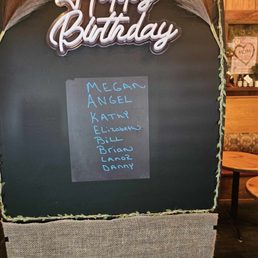 Happy
Birthday
MEGAN
ANGEL
KATHY
ELizabeth
BiLL
Brian
LANGE
DANNY